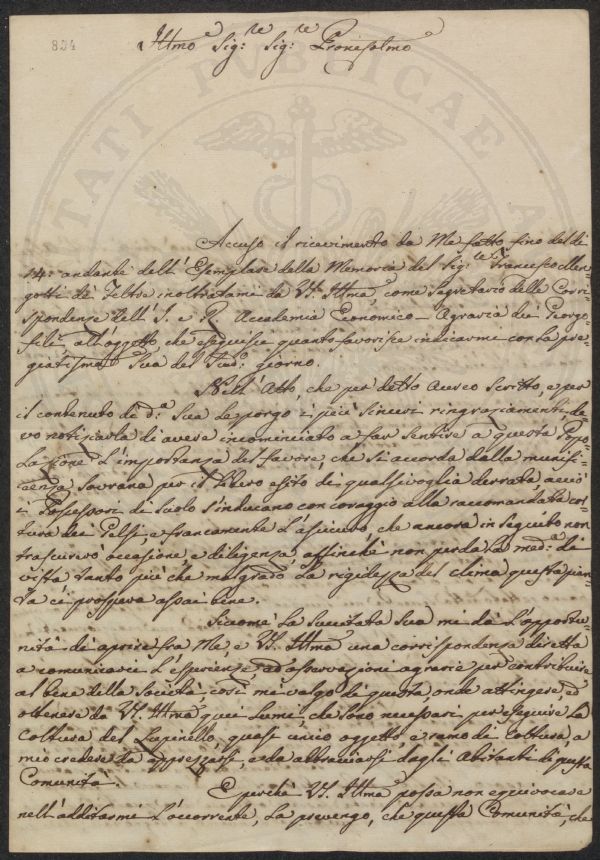 834
Illmo Sig:re Sig:re Pron: Colmo
Accuso il ricevimento da Me fatto fino del dì
14: andante dell'Esemplare della Memoria del Sig:re Francesco Men
gotti di Feltre inoltratami da VS. Illma, come Segretario delle Corri-
spondenze dell'I. e R. Accademia Economico-Agraria dei Georgo-
fili all'oggetto che eseguisse quanto favorisce indicarmi con la pre-
giatissma Sua del sud:o giorno.
Nell'Atto, che per detto Aureo Scritto, e per
il contenuto di d:a Sua Le porgo i più sinceri ringraziamenti, de
vo notificarla di avere incominciato a far sentire a questa Popo
lazione L'importanza del favore, che si accorda dalla munifi-
cenza Sovrana per il libero esito di qualsivoglia derrata, acciò
i Possessori di Suolo s'inducano con coraggio alla raccomandata col-
tura dei Gelsi, e francamente L'assicuro, che ancora in seguito non
trascurerò occasione, e diligenza, affinchè non perda la med:a di
vista tanto più che malgrado La rigidezza del clima questa pian-
ta ci prospera assai bene.
Siccome La succitata Sua mi dà L'opportu-
nità di aprire fra Me e VS. Illma una corrispondenza diretta
a comunicarci L'esperienze, ed osservazioni agrarie per contribuire
al bene della Società, così mi valgo di questa, onde attingere, ed
ottenere da VS. Illma quei Lumi, che sono necessari per eseguire La
coltura del Lupinello, quasi unico oggetto, e ramo di coltura, a
mio credere da apprezzarsi, e da abbracciarsi dagli Abitanti di questa
Comunità.
E perchè VS. Illma possa non equivocare
nell'additarmi L'occorrente, La prevengo, che questa Comunità, che